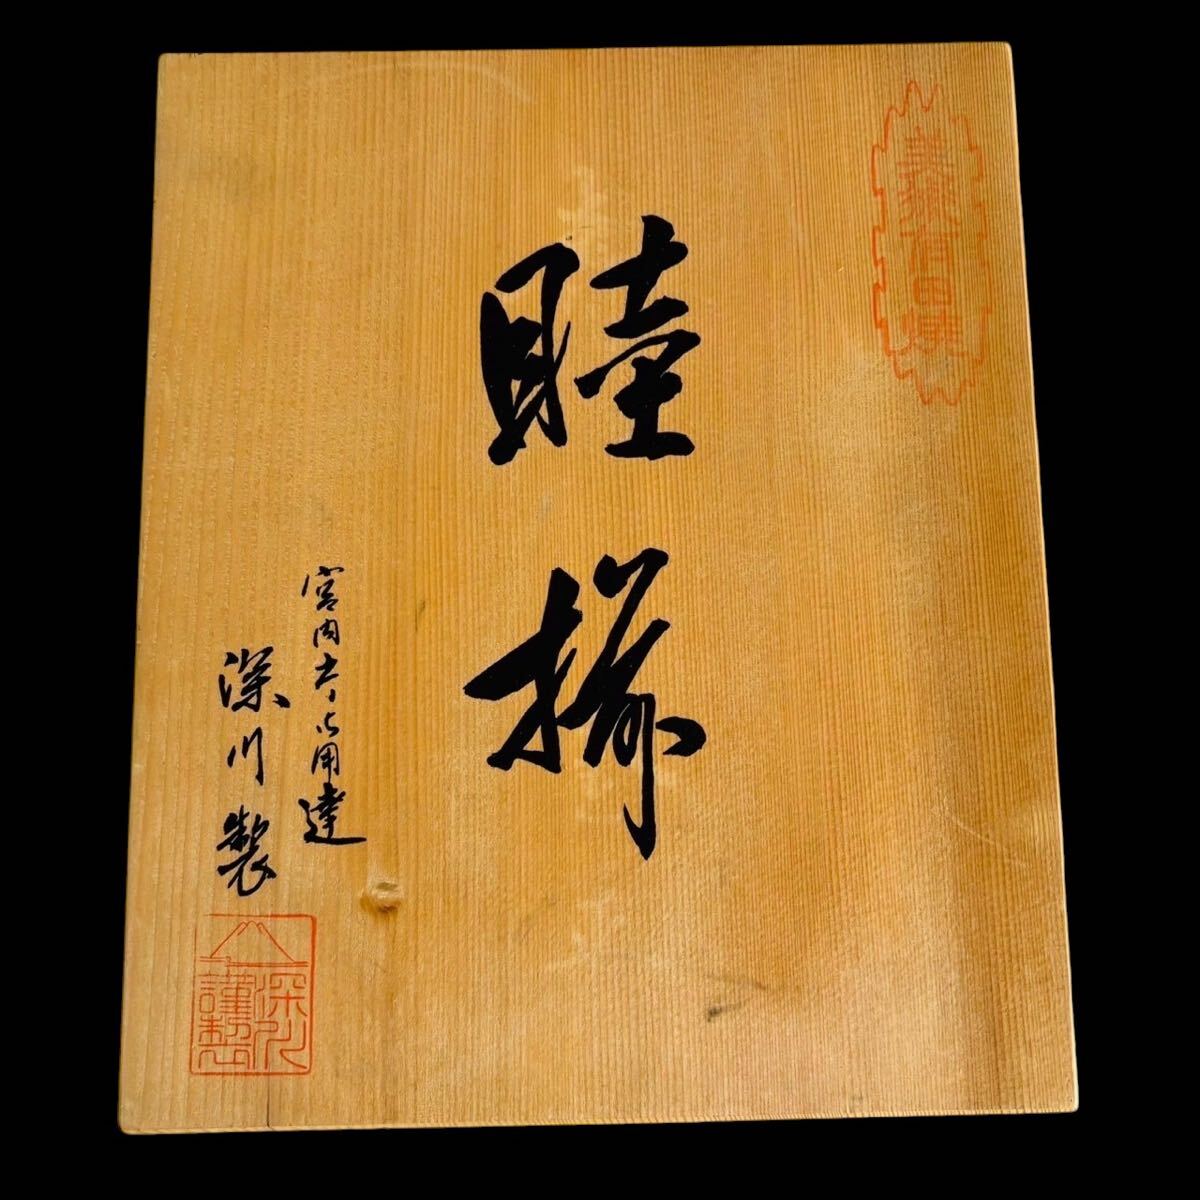 美術有田焼
睦揃
宮内庁御用達
深川製
深川
謹製